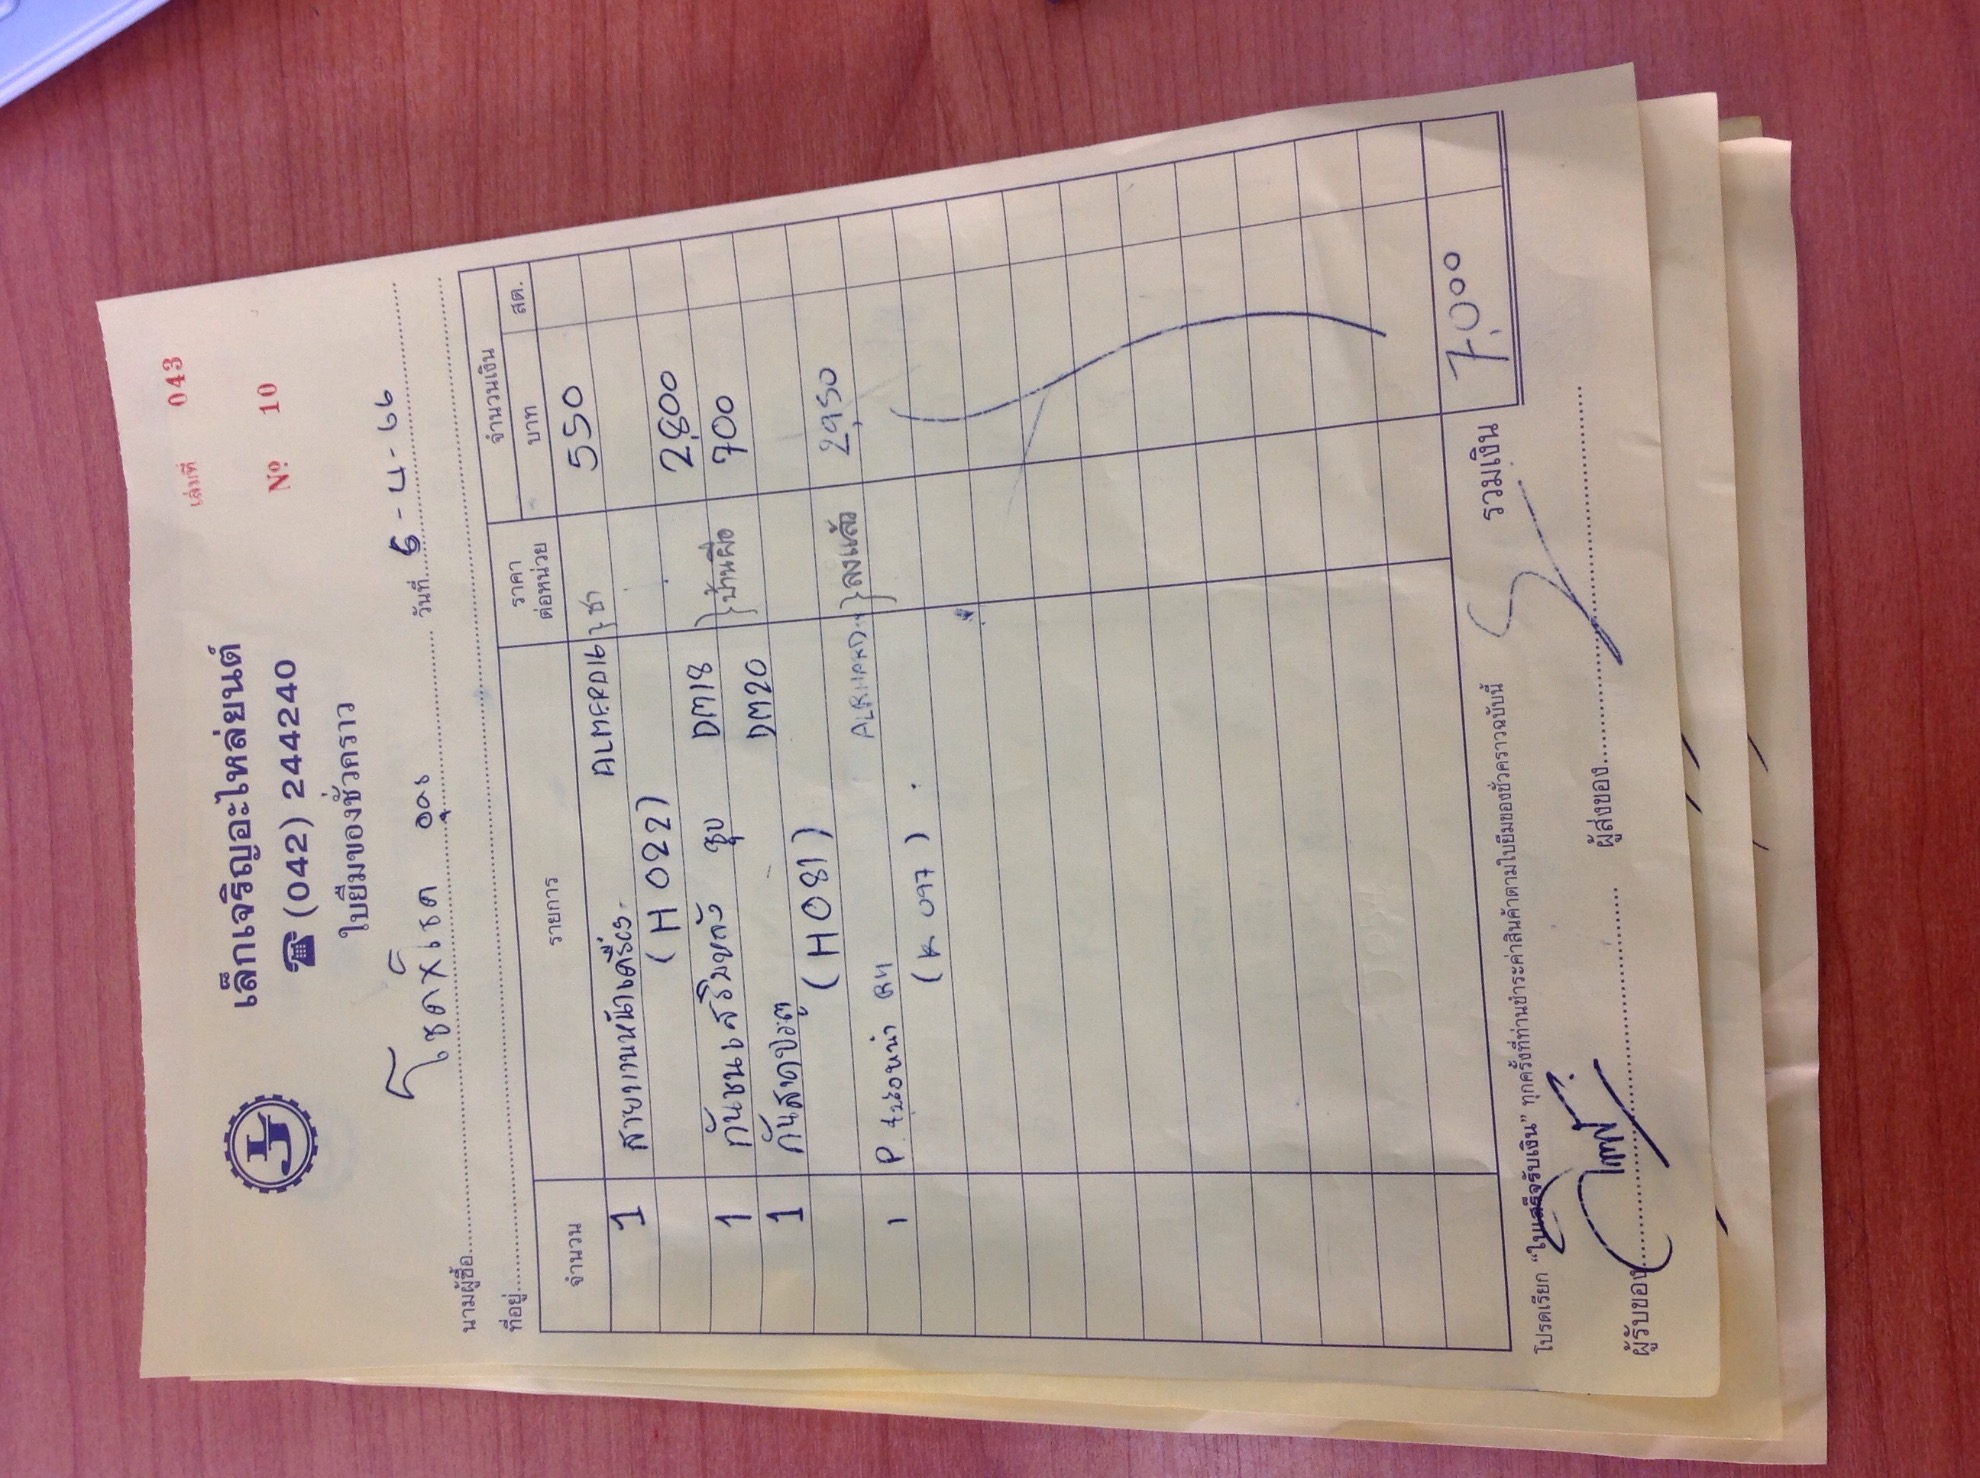 เล่มที่ 043
เล็กเจริญอะไหล่ยนต์
☎ (042) 244240
Nº 10
ใบยืมของชั่วคราว
นามผู้ซื้อ วันที่ 5-4-66
ที่อยู่
จำนวน รายการ ราคาต่อหน่วย จำนวนเงิน
บาท สต.
1 สายพานหน้าเครื่อง ALMERA 550
(H 022)
1 กันชนเสริมหลัง ชุบ DM18 2,800
1 กันสาดประตู DM20 } บ้านผือ 700
(H081)
1 RH } ลงแล้ว 2,950
(K 097)
รวมเงิน 7,000
โปรดเรียก “ใบเสร็จรับเงิน” ทุกครั้งที่ท่านชำระค่าสินค้าตามใบยืมของชั่วคราวฉบับนี้
ผู้รับของ ผู้ส่งของ